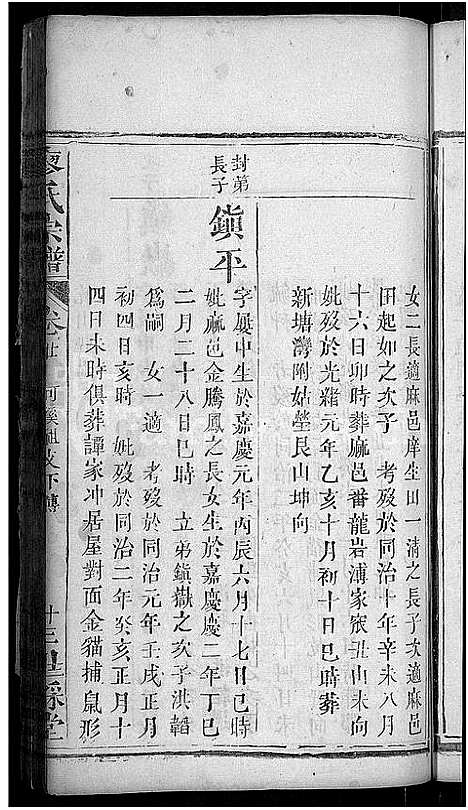 女二長適麻邑庠生田一清之長子次適麻邑
田起如之次子　考歿於同治十年辛未八月
十六日卯時葬麻邑番龍岩溥家嶔丑山未向
妣歿於光緒元年乙亥十月初十日巳時葬
新塘灣附姑塋艮山坤向
封弟
長子
鎮平
字慶中生於嘉慶元年丙辰六月十七日巳時
妣麻邑金騰鳳之長女生於嘉慶二年丁巳
二月二十八日巳時　立弟鎮嶽之次子洪韜
爲嗣　女一適　考歿於同治元年壬戌正月
初四日亥時　妣歿於同治二年癸亥正月十
四日未時俱葬譚家冲居屋對面金貓捕鼠形
廖氏宗譜
卷廿
河溪祖支下傳
十三
堂